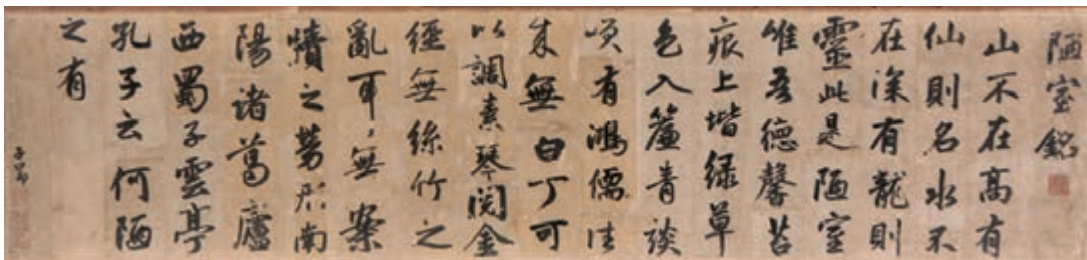 陋室銘
山不在高有
仙則名水不
在深有龍則
靈此是陋室
唯吾德馨苔
痕上堦緑草
色入簾青談
咲有鴻儒往
来無白丁可
以調素琴閲金
經無絲竹之
亂耳〻無案
牘之勞形南
陽諸葛廬
西蜀子雲亭
孔子云何陋
之有
子昂